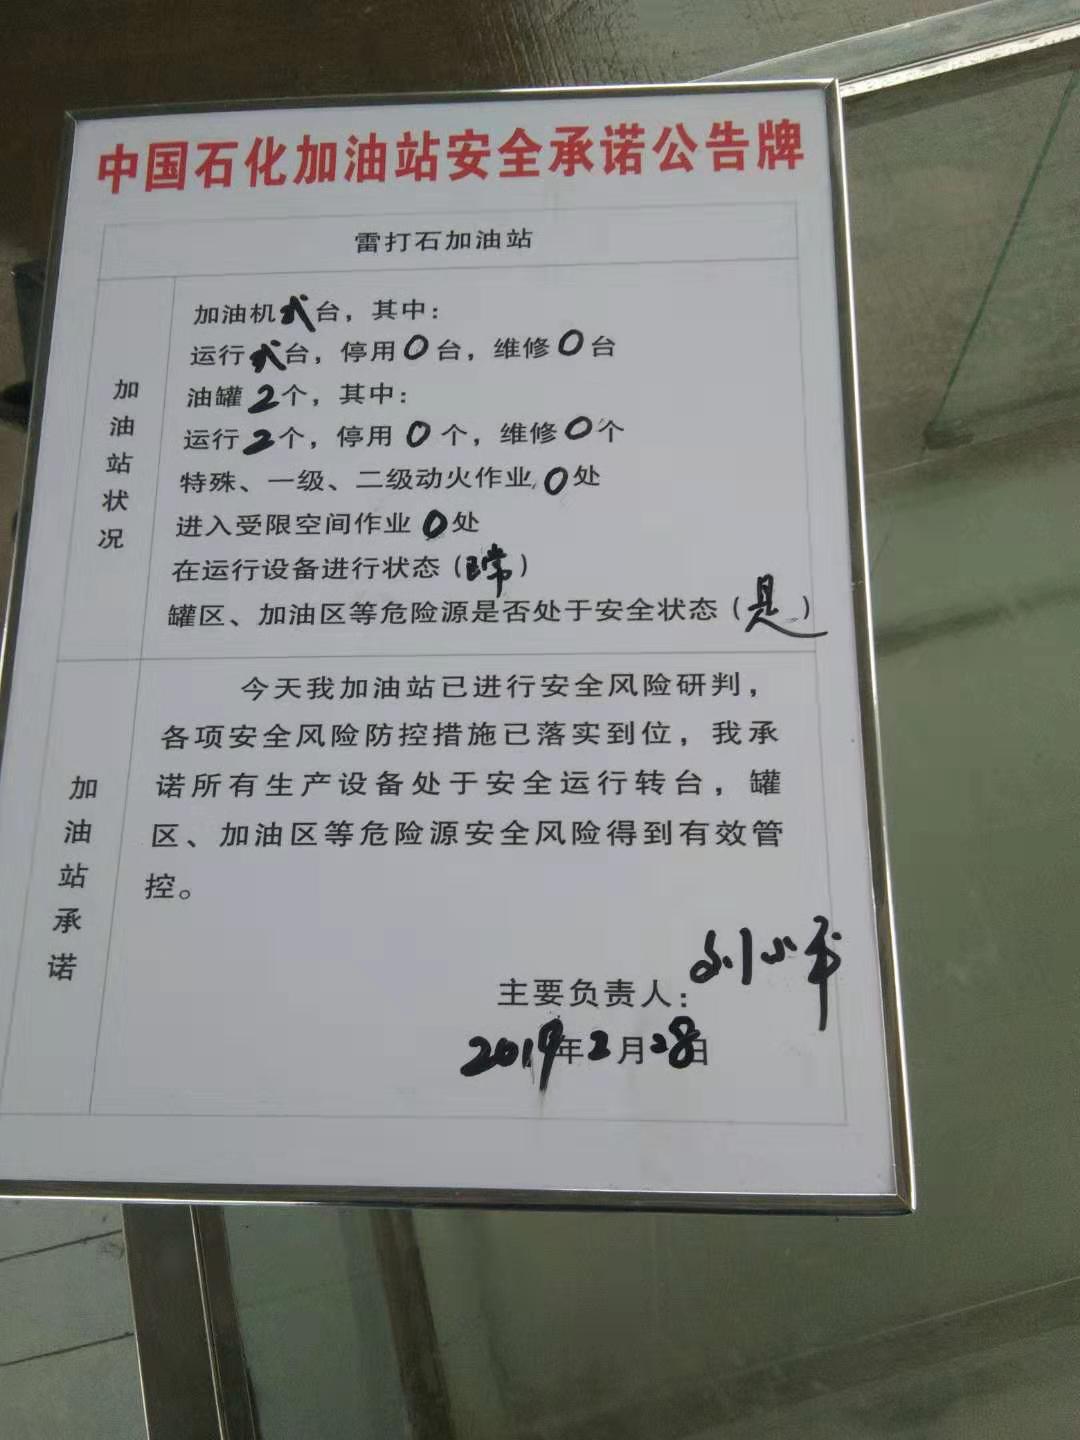 中国石化加油站安全承诺公告牌
雷打石加油站
加油站状况
加油机台，其中：
运行台，停用0台，维修0台
油罐2个，其中：
运行2个，停用0个，维修0个
特殊、一级、二级动火作业0处
进入受限空间作业0处
在运行设备进行状态（正常）
罐区、加油区等危险源是否处于安全状态（是）
加油站承诺
今天我加油站已进行安全风险研判，
各项安全风险防控措施已落实到位，我承
诺所有生产设备处于安全运行转台，罐
区、加油区等危险源安全风险得到有效管
控。
主要负责人：刘小平
2019年2月28日